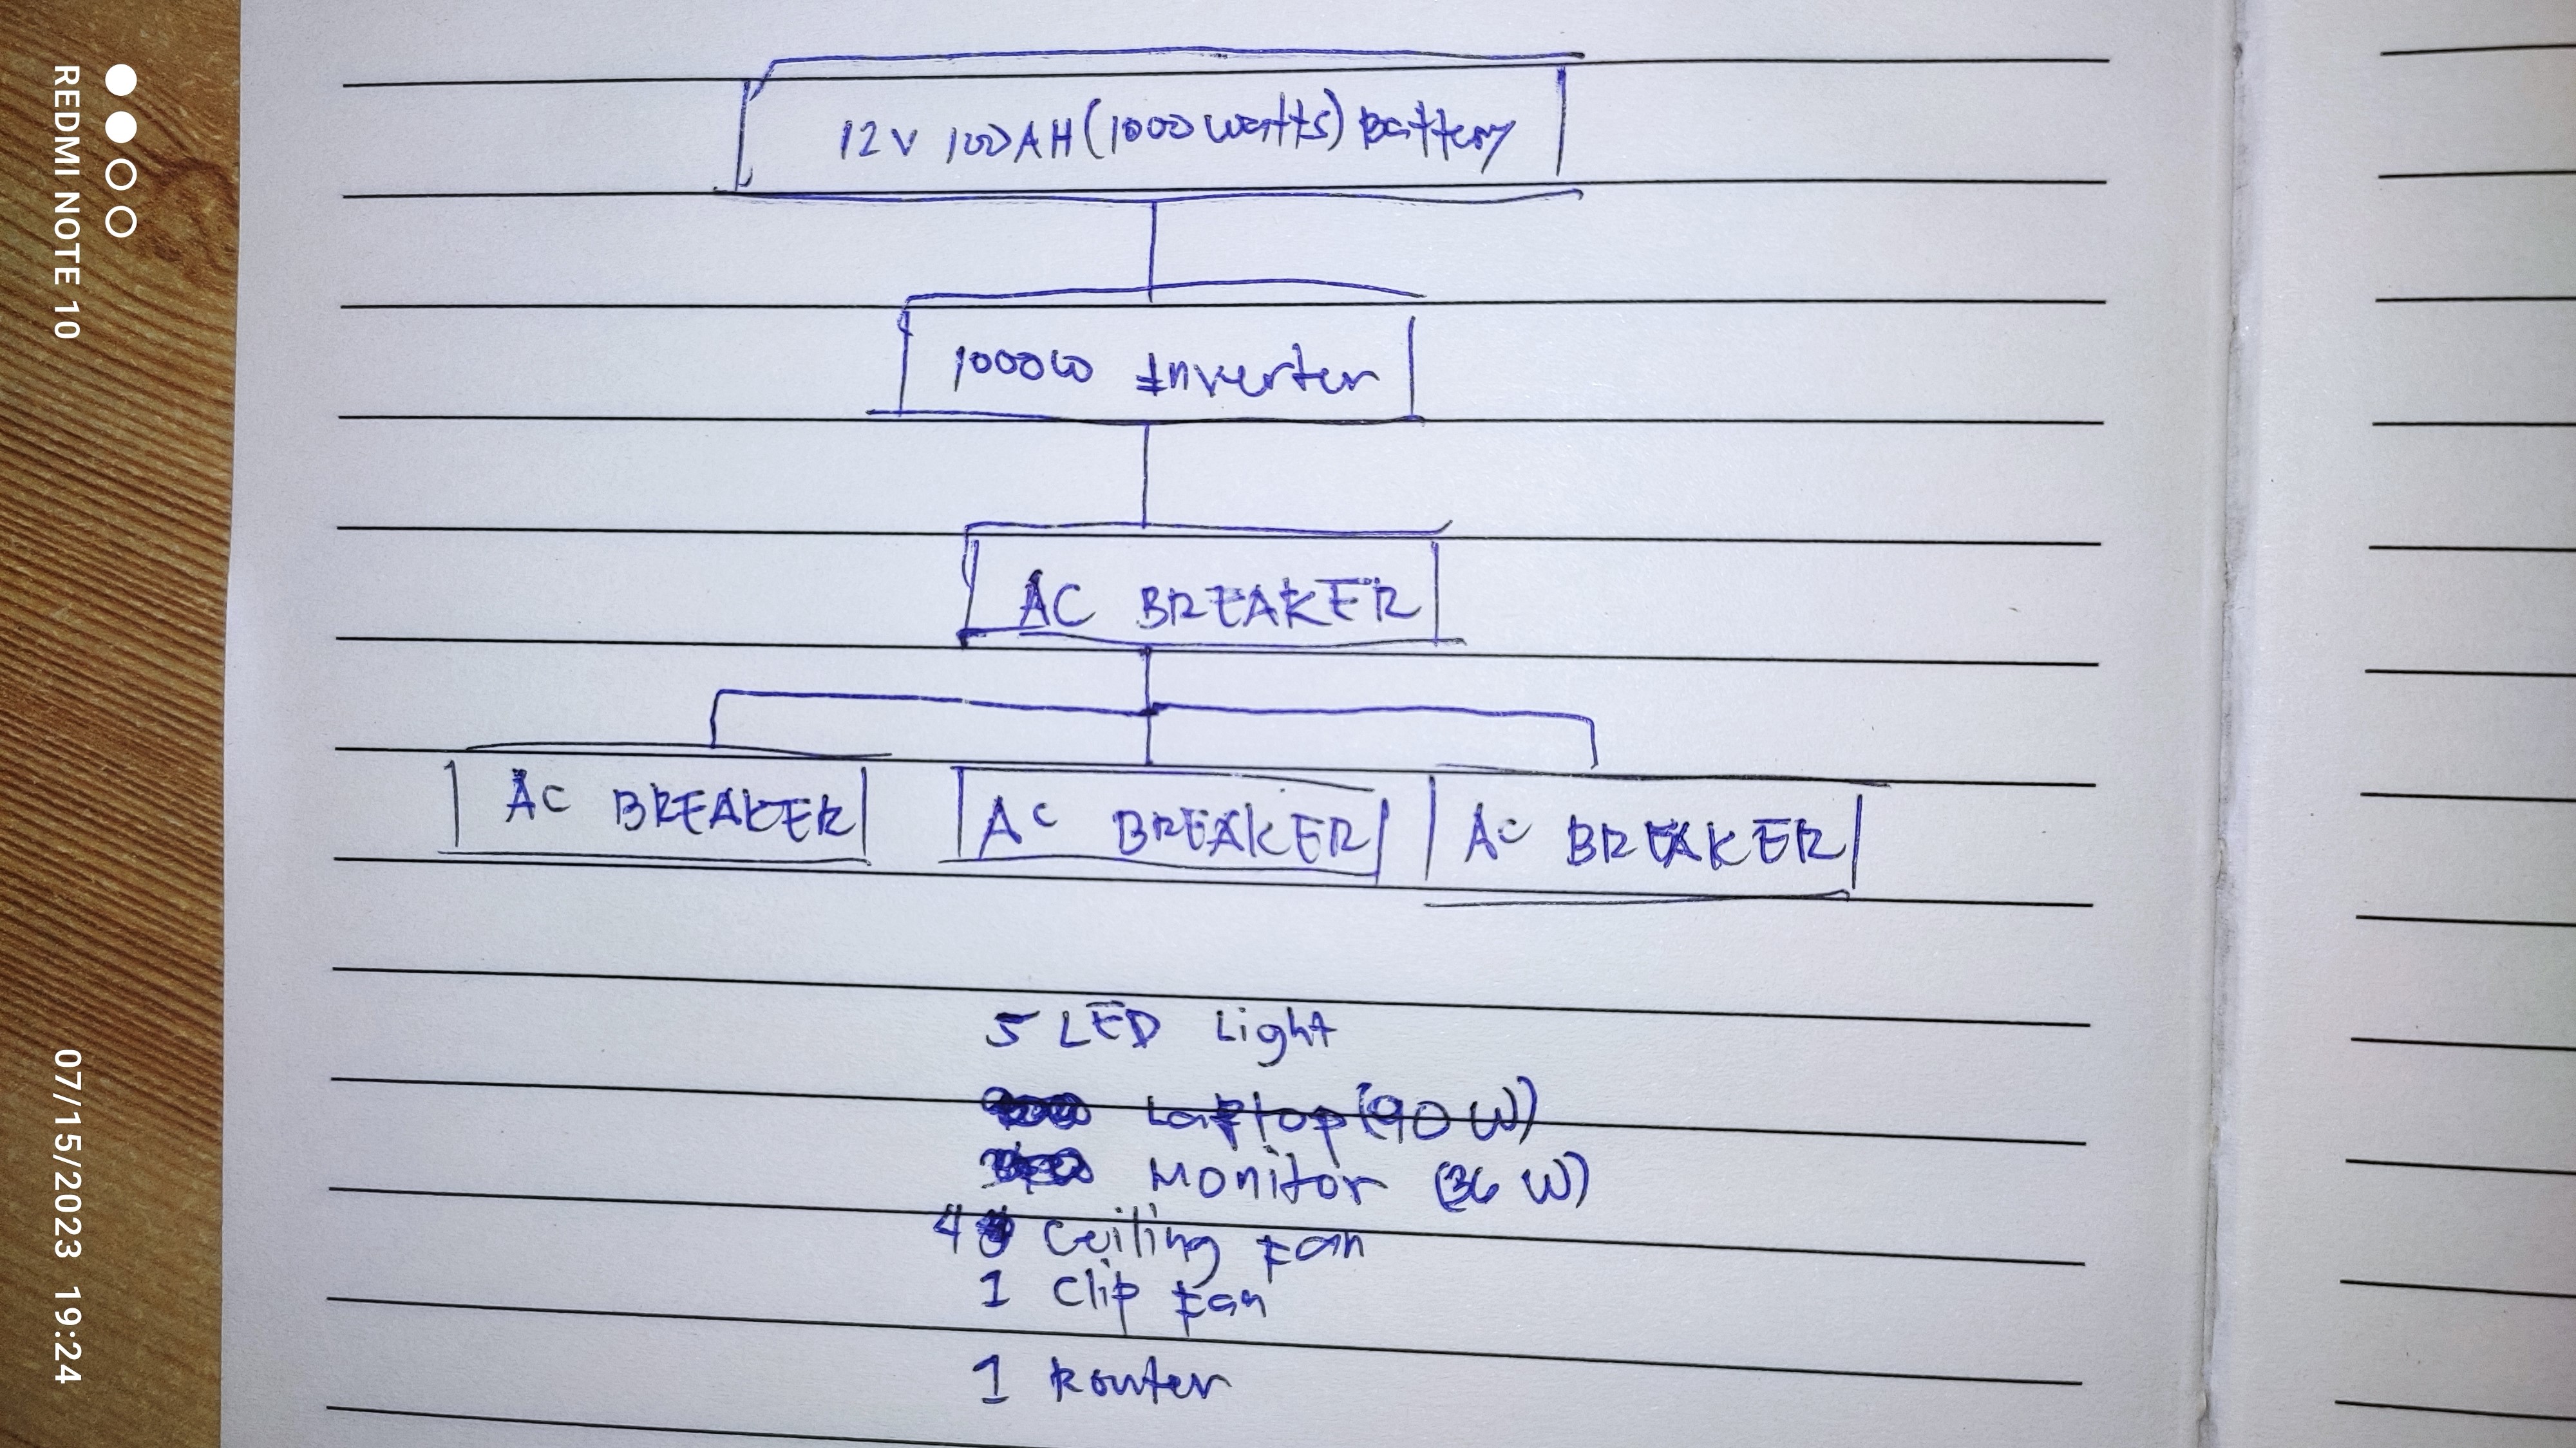 12V 100AH (1000 watts) Battery
1000W Inverter
AC BREAKER
AC BREAKER AC BREAKER AC BREAKER
5 LED Light
Laptop (90 W)
Monitor (36 W)
4 Ceiling Fan
1 Clip Fan
1 Router
REDMI NOTE 10
07/15/2023 19:24